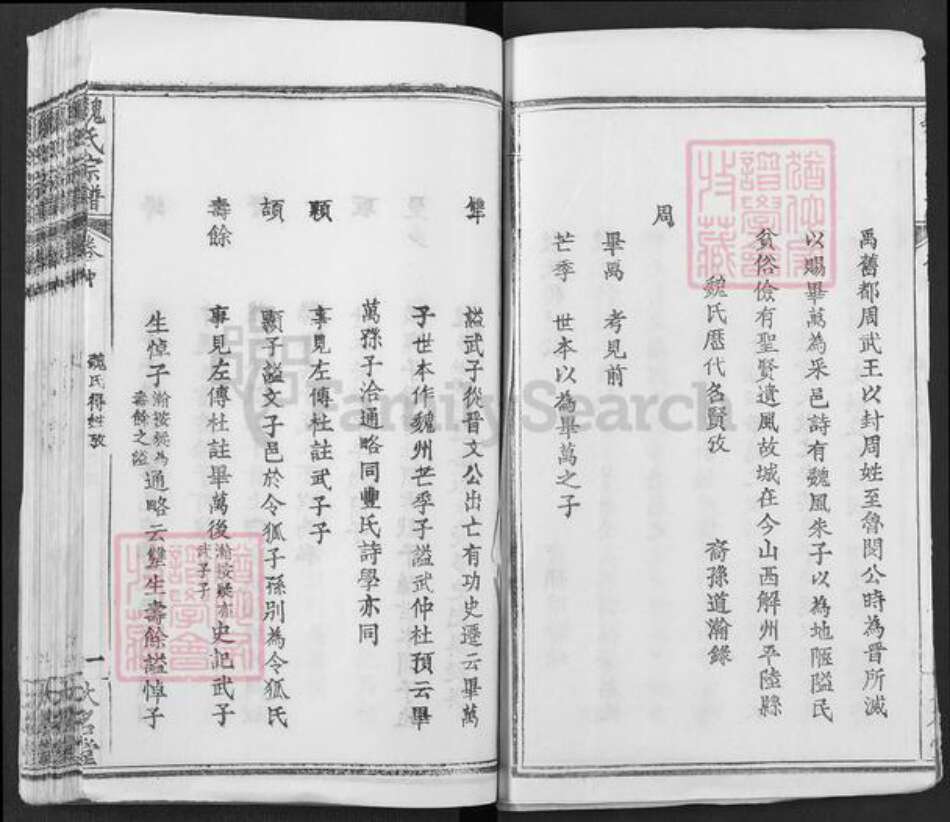 禹舊都周武王以封周姓至魯閔公時為晉所滅
以賜畢萬為采邑詩有魏風朱子以為地陿隘民
貧俗儉有聖賢遺風故城在今山西解州平陸縣
魏氏歷代名賢攷　裔孫道瀚錄
周
畢萬　考見前
芒季　世本以為畢萬之子
犨　謚武子從晉文公出亡有功史遷云畢萬
子世本作魏州芒季子謚武仲杜預云畢
萬孫子洽通略同豐氏詩學亦同
顆　事見左傳杜註武子子
頡　顆子謚文子邑於令狐子孫別為令狐氏
壽餘　事見左傳杜註畢萬後瀚按疑亦武子子史記武子
生悼子瀚按疑為壽餘之謚通略云犨生壽餘謚悼子
魏氏宗譜
魏氏得姓攷
一
FamilySearch